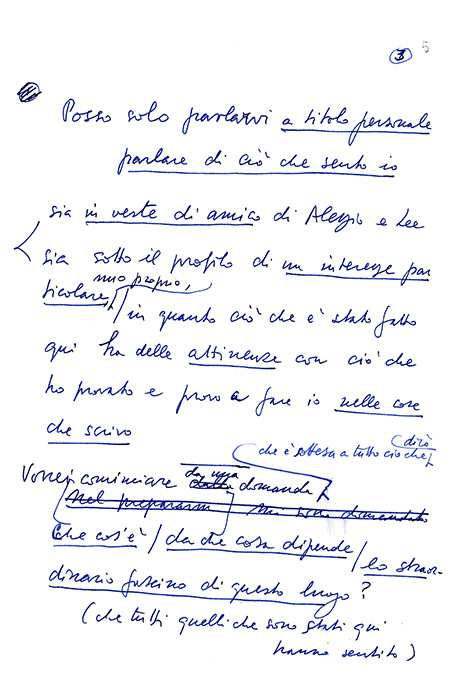 3 5
Posso solo parlarvi a titolo personale
parlare di ciò che sento io
sia in veste di amico di Alessio e Lee
sia sotto il profilo di un interesse par
mio proprio,
ticolare, / in quanto ciò che è stato fatto
qui ha delle attinenze con ciò che
ho provato e provo a fare io nelle cose
che scrivo
dirò
che è sottesa a tutto ciò che
da una
Vorrei cominciare dalla domanda
nel prepararmi mi sono domandato
Che cos'è / da che cosa dipende / lo straor-
dinario fascino di questo luogo?
(che tutti quelli che sono stati qui
hanno sentito)